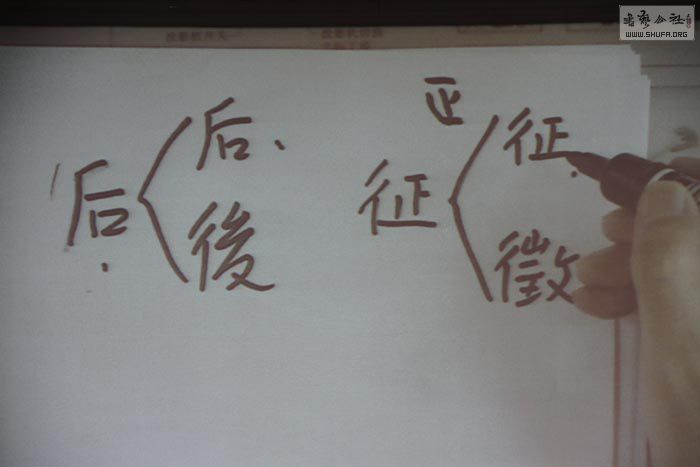 书艺公社
WWW.SHUFA.ORG
后
后
後
正
征
征
徵